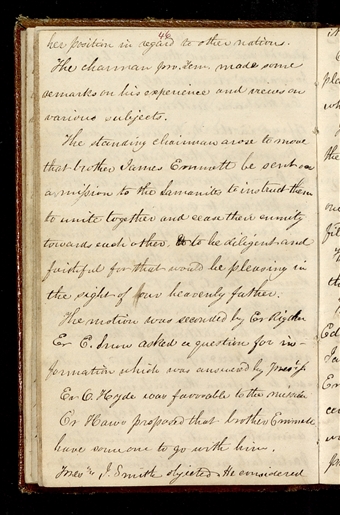 46
her position in regard to other nations.
The chairman pro. tem. made some
remarks on his experience and views on
various subjects.
The standing chairman arose to move
that brother James Emmett be sent on
a mission to the Lamanites to instruct them
to unite together and cease their enmity
towards each other, & to be diligent and
faithful for that would be pleasing in
the sight of our heavenly father.
The motion was seconded by Er Rigdon
Er E. Snow asked a question for in-
formation which was answered by
Er O. Hyde was favorable to the mission
Er Haws proposed that brother Emmett
have someone to go with him.
J. Smith objected. He considered